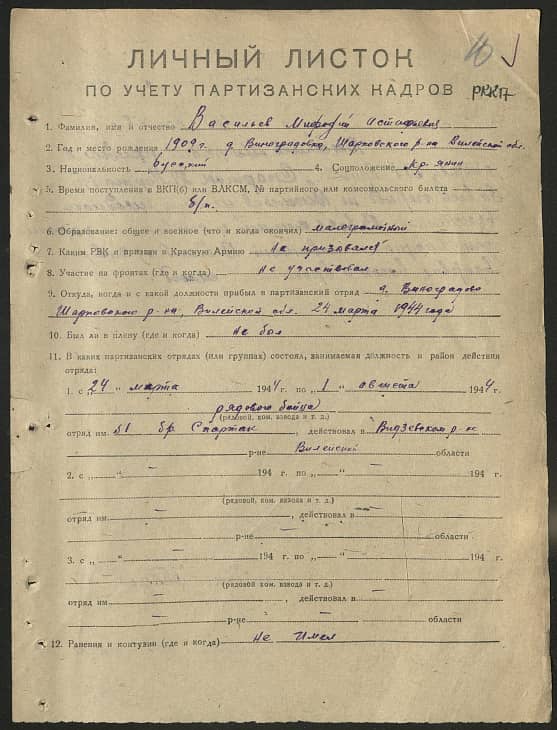 ЛИЧНЫЙ ЛИСТОК
ПО УЧЕТУ ПАРТИЗАНСКИХ КАДРОВ
РККП
1. Фамилия, имя и отчество Васильев Мифодий
2. Год и место рождения 1909 г. д. Виноградовка, Шарковского р-на Вилейской обл.
3. Национальность Русский 4. Соцположение Кр-янин
5. Время поступления в ВКП(б) или ВЛКСМ, № партийного или комсомольского билета
б/п.
6. Образование: общее и военное (что и когда окончил) малограмотный
7. Каким РВК и призван в Красную Армию Не призывался
8. Участие на фронтах (где и когда) Не участвовал
9. Откуда, когда и с какой должности прибыл в партизанский отряд д. Виноградово
Шарковского р-на, Вилейской обл. 24 марта 1944 года
10. Был ли в плену (где и когда) Не был
11. В каких партизанских отрядах (или группах) состоял, занимаемая должность и район действия
отряда:
1. с „24 “ марта 1944 г. по „1 “ августа 1944 г.
рядового бойца
(рядовой, ком. взвода и т. д.)
отряд им. бр. Спартак, действовал в Видзевском р-не
р-не Вилейской области
2. с „ — “ — 194 г. по „ — “ — 194 г.
(рядовой, ком. взвода и т. д.)
отряд им — , действовал в —
— р-не — области
3. с „ — “ — 194 г. по „ — “ — 194 г.
(рядовой ком. взвода и т. д.)
отряд им — , действовал в —
— р-не — области
12. Ранения и контузии (где и когда) Не имел